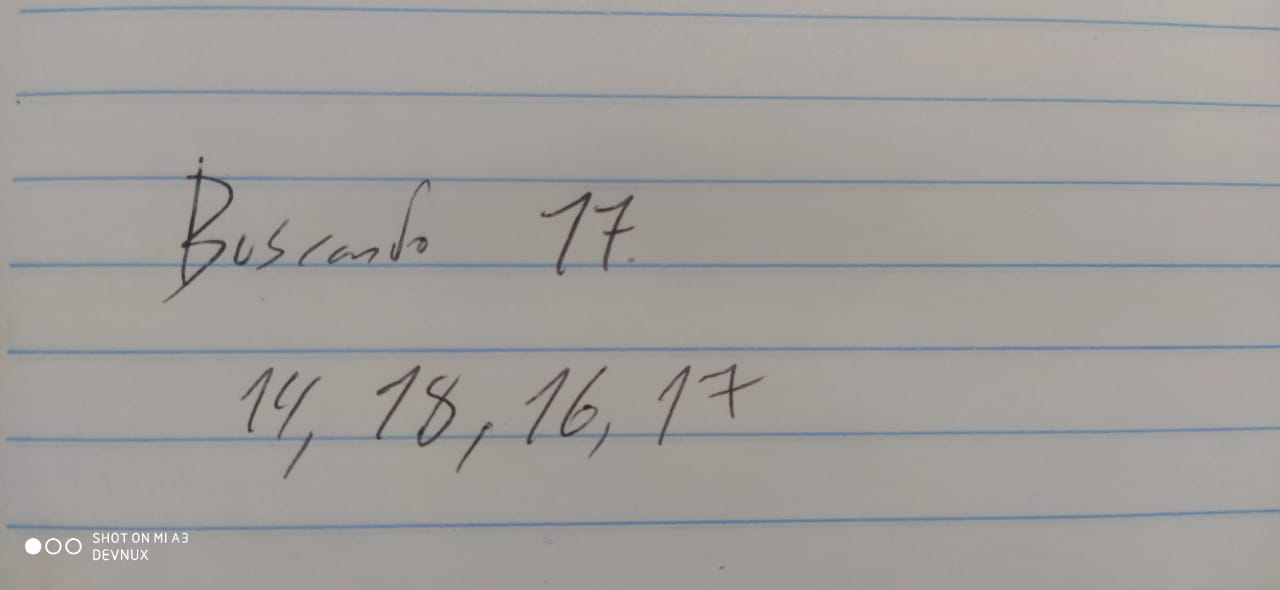 Buscando 17.
14, 18, 16, 17
SHOT ON MI A3
DEVNUX